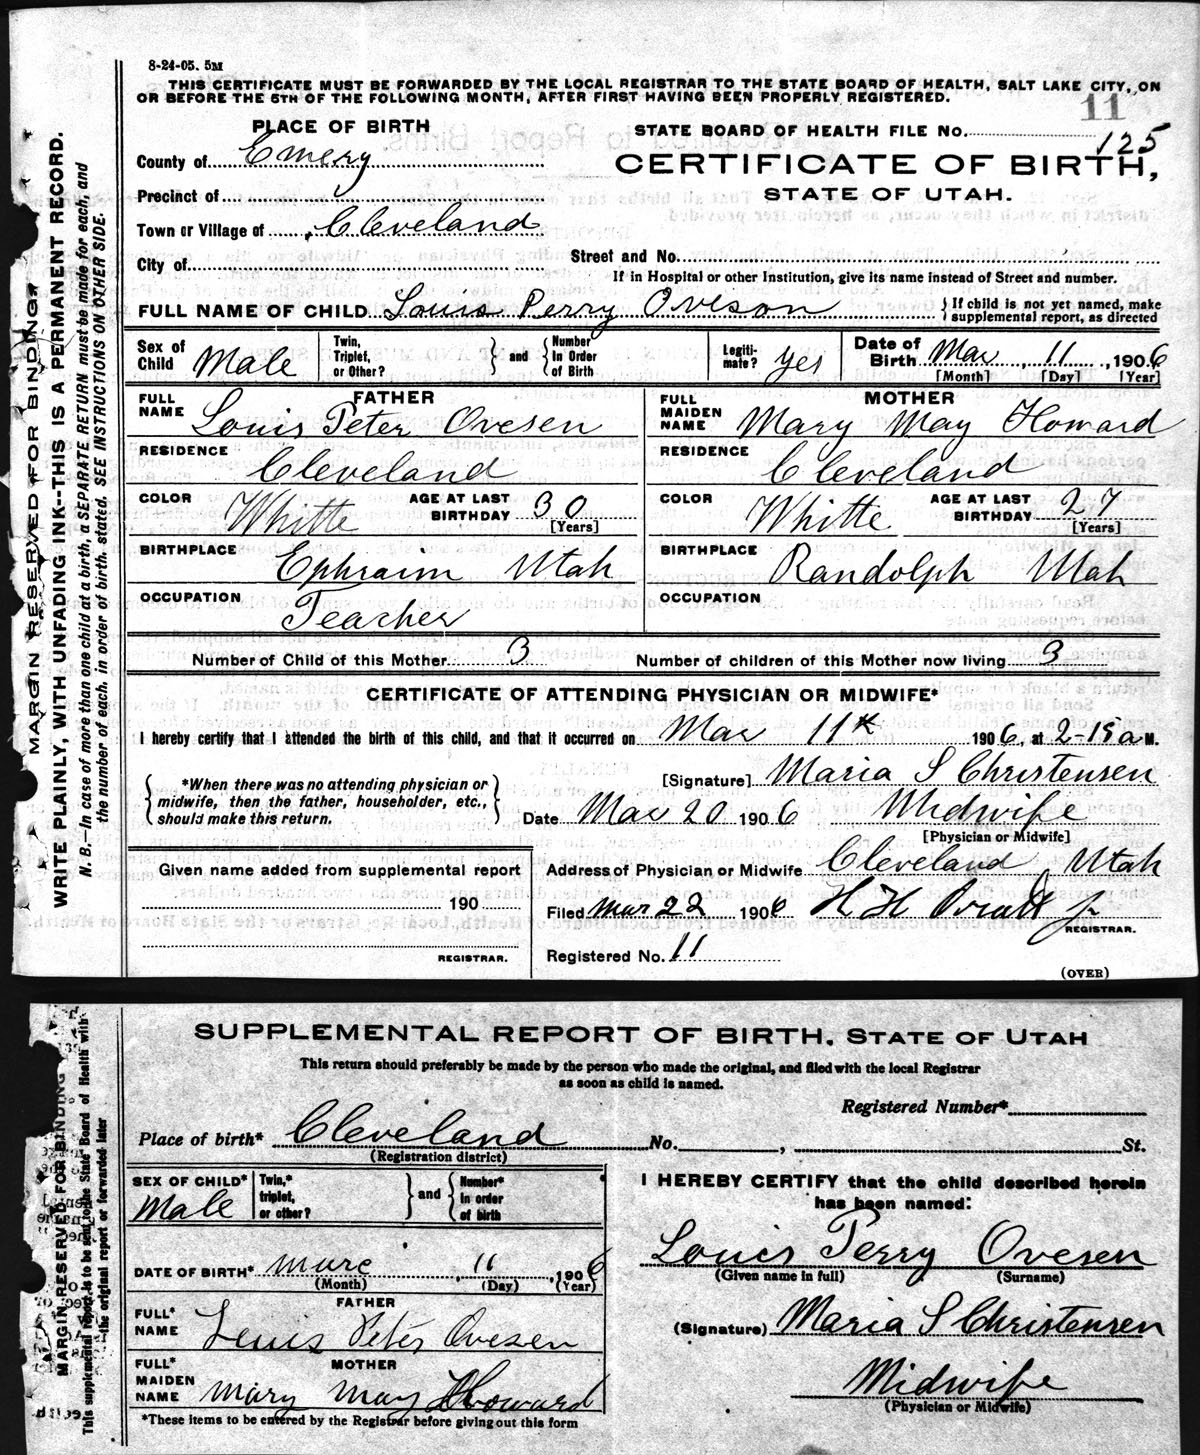 8-24-05. 5M
THIS CERTIFICATE MUST BE FORWARDED BY THE LOCAL REGISTRAR TO THE STATE BOARD OF HEALTH, SALT LAKE CITY, ON
OR BEFORE THE 5TH OF THE FOLLOWING MONTH, AFTER FIRST HAVING BEEN PROPERLY REGISTERED.
11
PLACE OF BIRTH
STATE BOARD OF HEALTH FILE No. 125
County of Emery
CERTIFICATE OF BIRTH,
Precinct of
STATE OF UTAH.
Town or Village of Cleveland
City of
Street and No.
If in Hospital or other Institution, give its name instead of Street and number.
FULL NAME OF CHILD Louis Perry Oveson } If child is not yet named, make supplemental report, as directed
Sex of Child Male Twin, Triplet, or Other? } and { Number In Order of Birth Legiti-mate? yes Date of Birth Mar 11, 1906
[Month] [Day] [Year]
FATHER
FULL NAME Louis Peter Ovesen
RESIDENCE Cleveland
COLOR Whitte AGE AT LAST BIRTHDAY 30 [Years]
BIRTHPLACE Ephraim Utah
OCCUPATION Teacher
MOTHER
FULL MAIDEN NAME Mary May Howard
RESIDENCE Cleveland
COLOR Whitte AGE AT LAST BIRTHDAY 27 [Years]
BIRTHPLACE Randolph Utah
OCCUPATION
Number of Child of this Mother 3 Number of children of this Mother now living 3
CERTIFICATE OF ATTENDING PHYSICIAN OR MIDWIFE*
I hereby certify that I attended the birth of this child, and that it occurred on Mar 11th 1906, at 2-15 a M.
{ *When there was no attending physician or midwife, then the father, householder, etc., should make this return. }
[Signature] Maria S Christensen
Date Mar 20 1906 Midwife
[Physician or Midwife]
Given name added from supplemental report
190
REGISTRAR.
Address of Physician or Midwife Cleveland Utah
Filed Mar 22 1906 H H Oviatt Jr
REGISTRAR.
Registered No. 11
(OVER)
MARGIN RESERVED FOR BINDING.
WRITE PLAINLY, WITH UNFADING INK--THIS IS A PERMANENT RECORD.
N. B.—In case of more than one child at a birth, a SEPARATE RETURN must be made for each, and
the number of each, in order of birth, stated. SEE INSTRUCTIONS ON OTHER SIDE.
SUPPLEMENTAL REPORT OF BIRTH, STATE OF UTAH
This return should preferably be made by the person who made the original, and filed with the local Registrar
as soon as child is named.
Registered Number*
Place of birth* Cleveland No. , St.
(Registration district)
SEX OF CHILD* Male Twin,* triplet, or other? } and { Number* in order of birth
DATE OF BIRTH* marc 11 1906
(Month) (Day) (Year)
FATHER
FULL* NAME Louis Peter Ovesen
MOTHER
FULL* MAIDEN NAME Mary May Howard
*These items to be entered by the Registrar before giving out this form
I HEREBY CERTIFY that the child described herein
has been named:
Louis Perry Ovesen
(Given name in full) (Surname)
(Signature) Maria S Christensen
Midwife
(Physician or Midwife)
MARGIN RESERVED FOR BINDING
This supplemental report is to be sent to the State Board of Health with
the original report or forwarded later